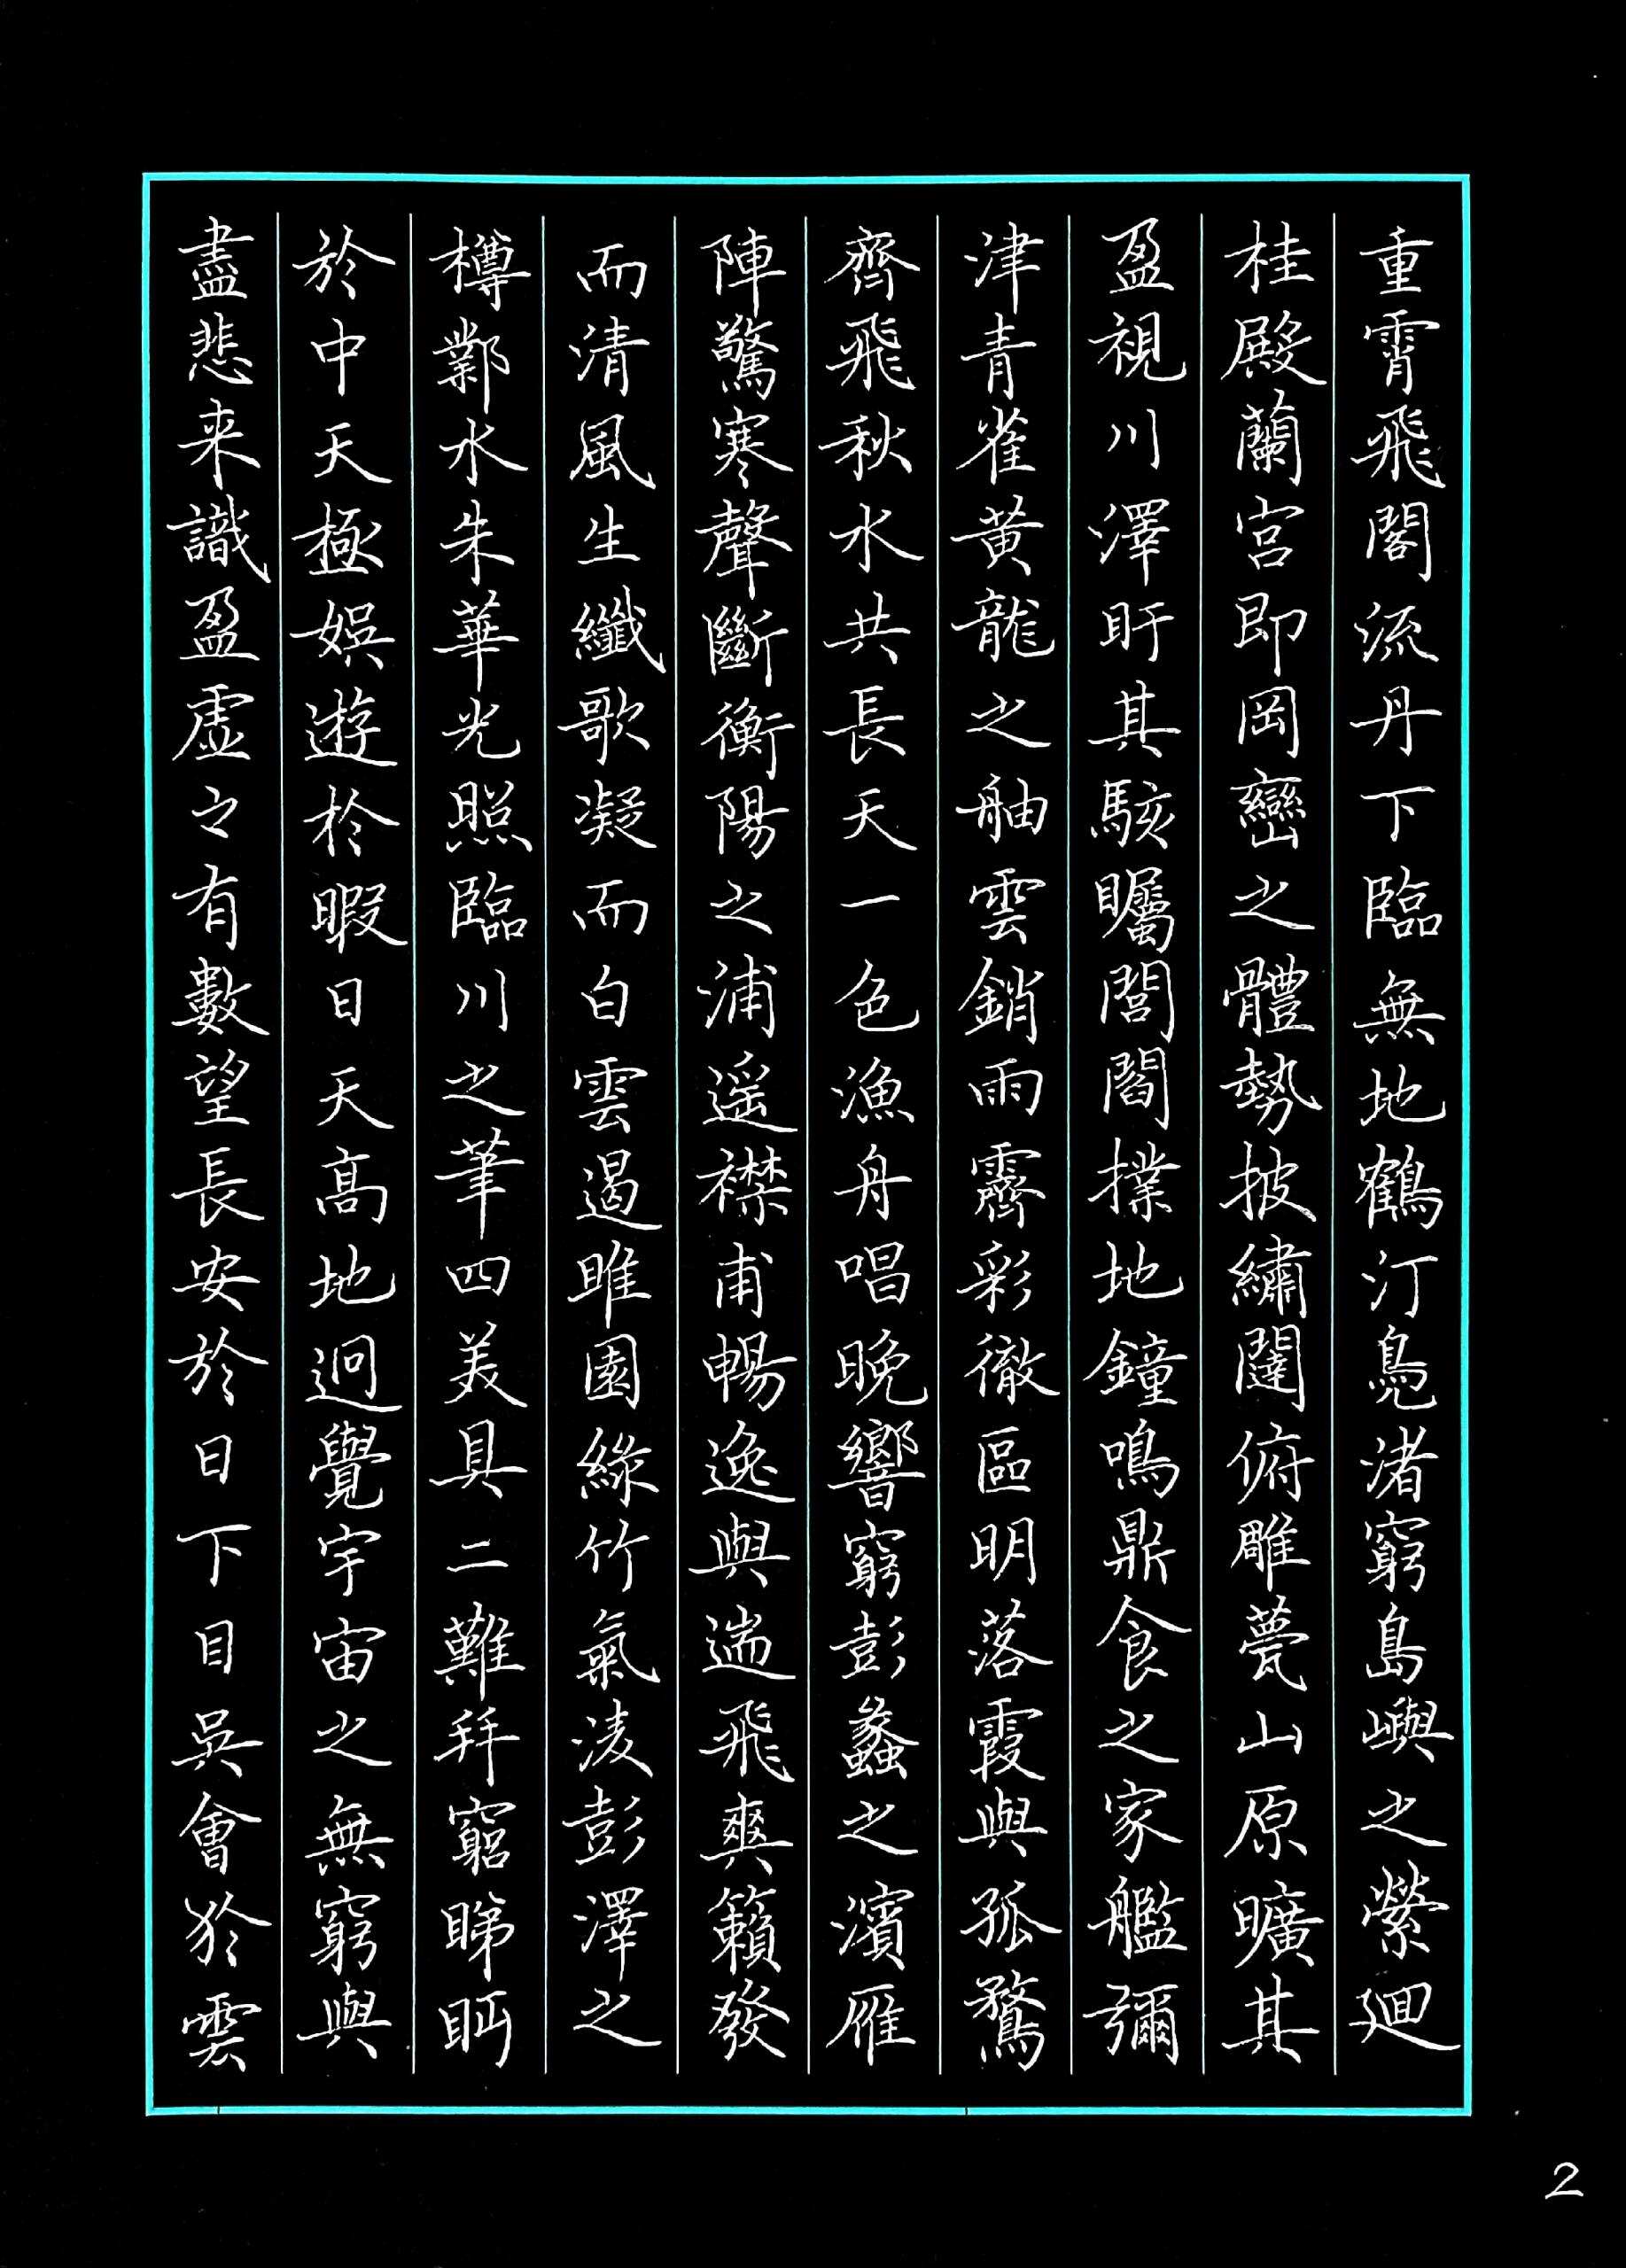 重霄飛閣流丹下臨無地鶴汀鳧渚窮島嶼之縈廻
桂殿蘭宮即岡巒之體勢披繡闥俯雕甍山原曠其
盈視川澤盱其駭矚閭閻撲地鐘鳴鼎食之家艦彌
津青雀黃龍之舳雲銷雨霽彩徹區明落霞與孤鶩
齊飛秋水共長天一色漁舟唱晚響窮彭蠡之濱雁
陣驚寒聲斷衡陽之浦遥襟甫暢逸與遄飛爽籟發
而清風生纖歌凝而白雲遏睢園綠竹氣淩彭澤之
樽鄴水朱華光照臨川之筆四美具二難拜窮睇眄
於中天極娛遊於暇日天高地迥覺宇宙之無窮與
盡悲来識盈虛之有數望長安於日下目吳會於雲
2